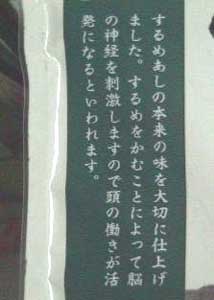 するめあしの本来の味を大切に仕上げ
ました。するめをかむことによって脳
の神経を刺激しますので頭の働きが活
発になるといわれます。